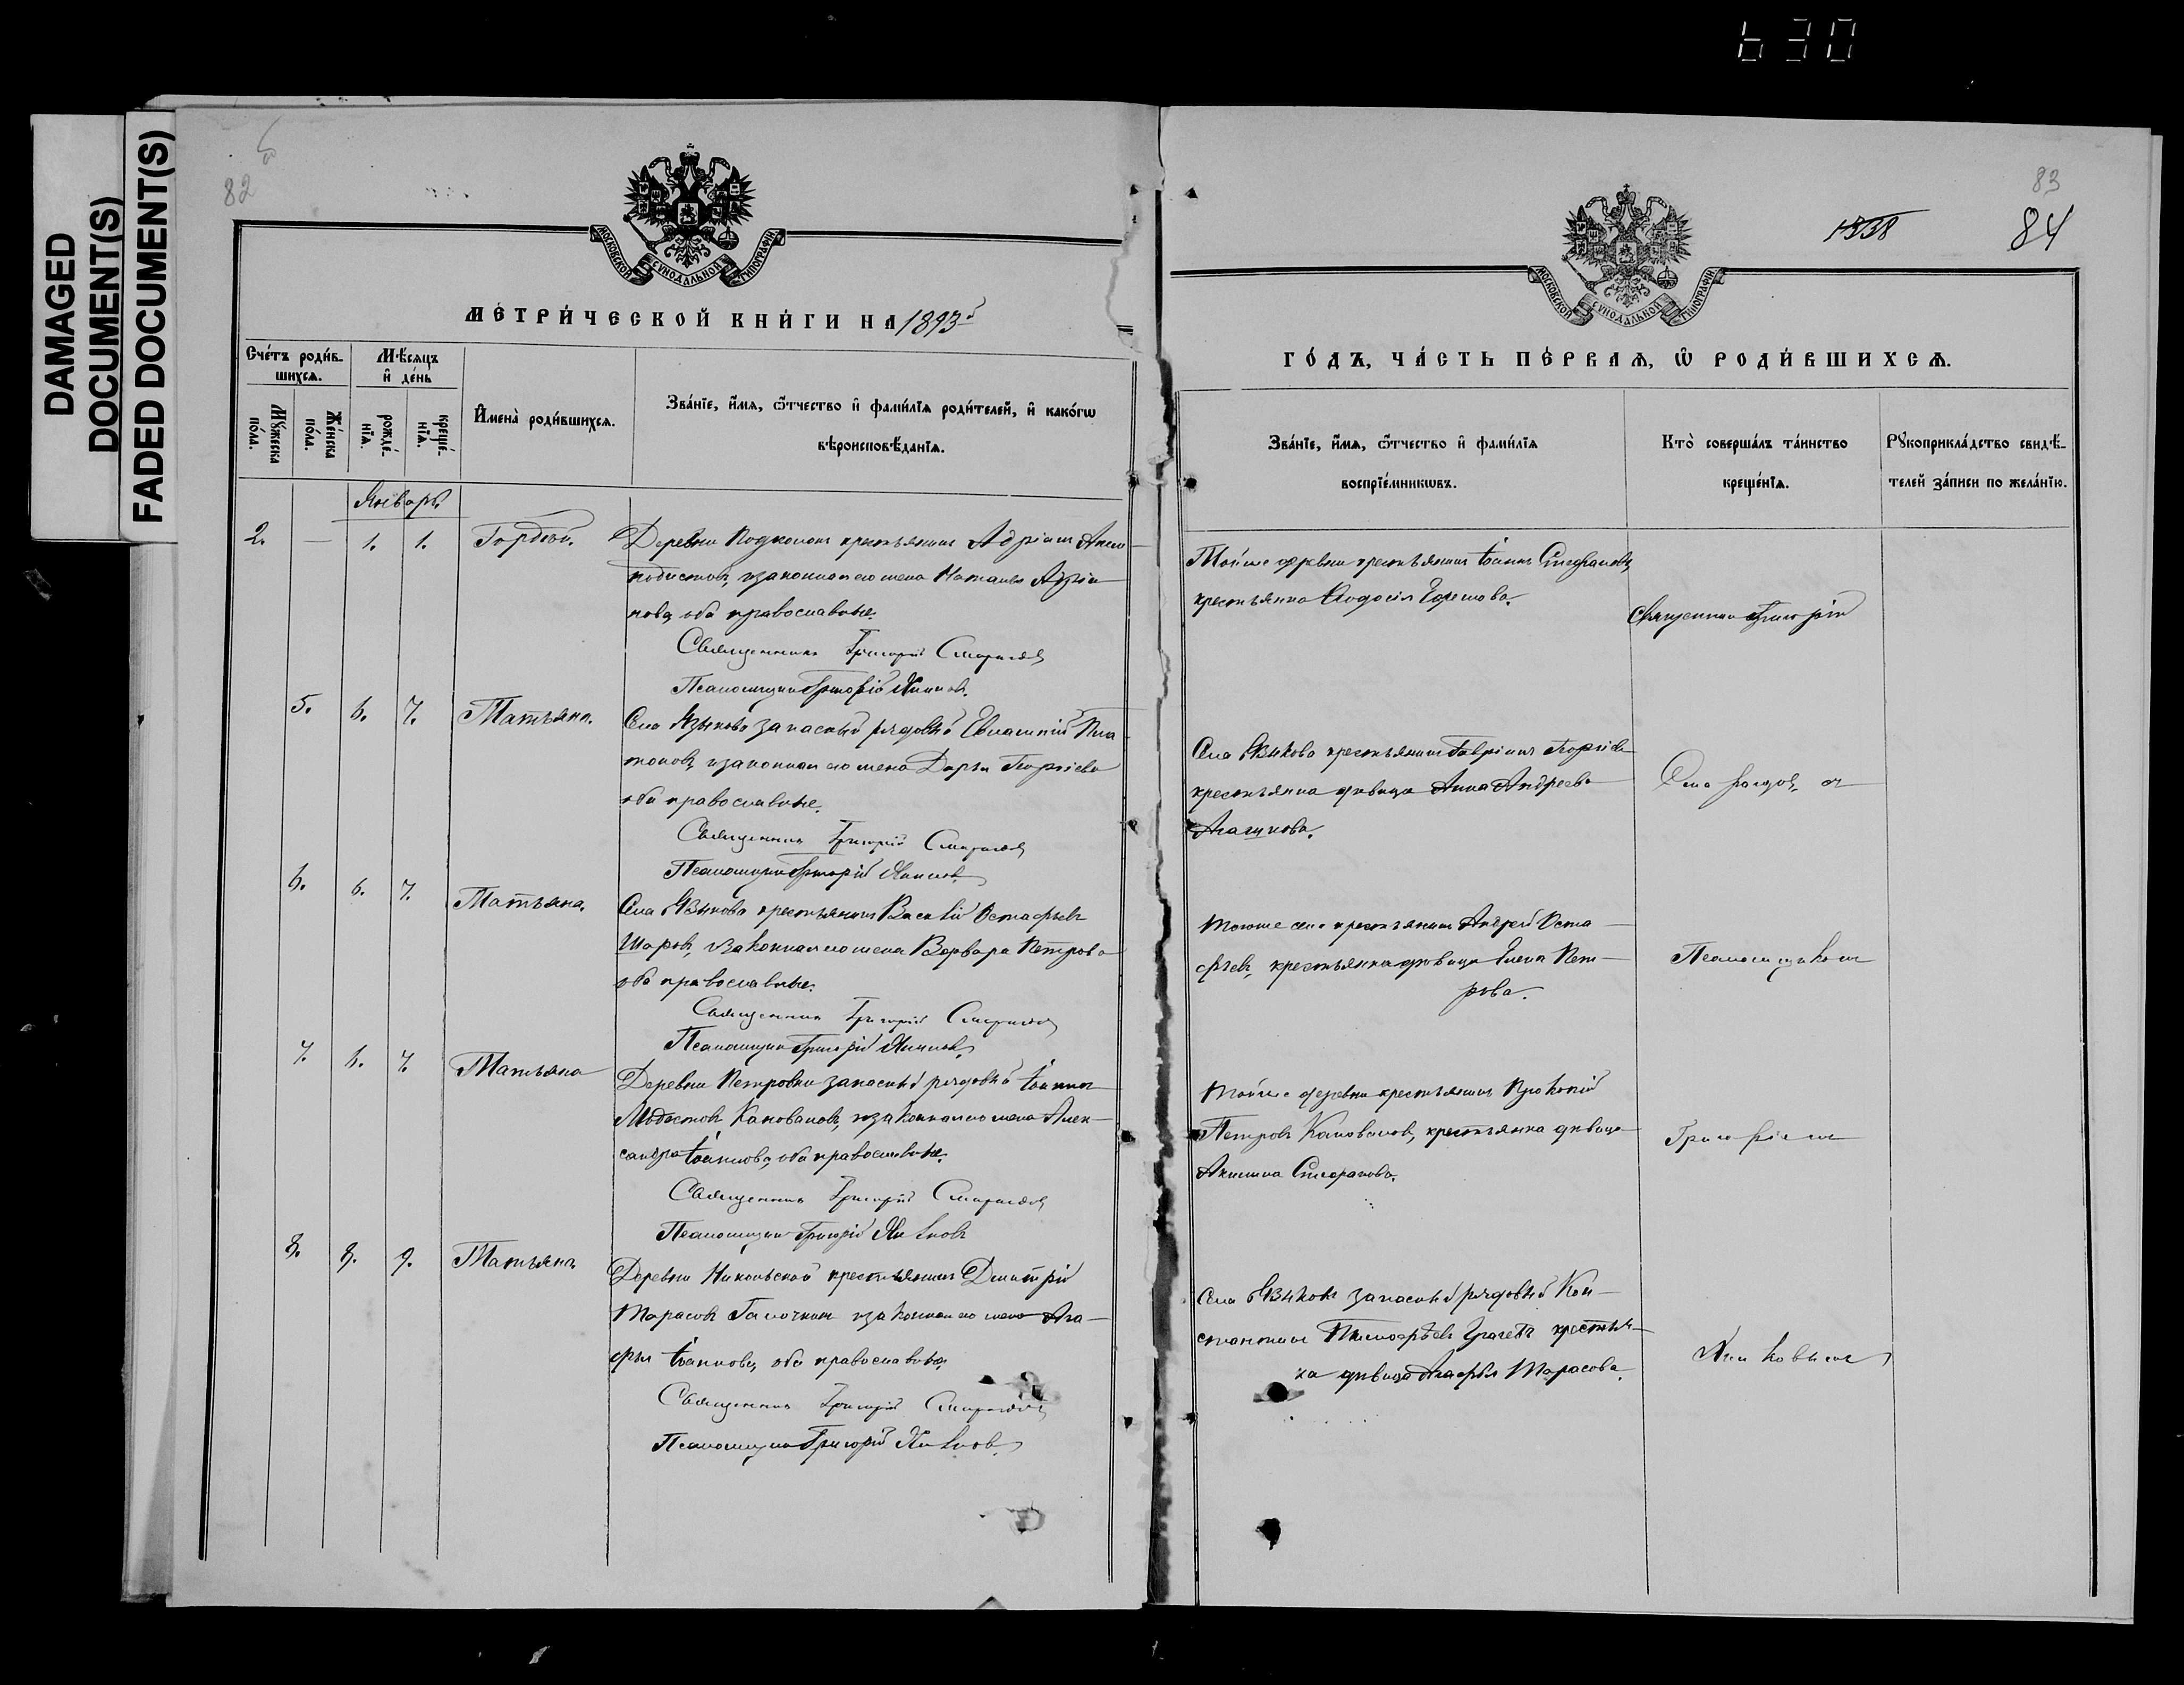 630
DAMAGED
DOCUMENT(S)
FADED DOCUMENT(S)
82
МОСКОВСКОЙ СУНОДАЛЬНОЙ ТИПОГРАФІИ
МЕТРИ́ЧЕСКОЙ КНИ́ГИ НА 1893
Сче́тъ роди́в-
шихсѧ.
Мѣ́сѧцъ
и҆ де́нь
И҆мена̀ роди́вшихсѧ.
Зва́нїе, и҆́мѧ, ѻ҆́тчество и҆ фами́лїѧ роди́телей, и҆ како́гѡ
вѣроисповѣ́данїѧ.
Мꙋ́жеска
по́ла.
Же́нска
по́ла.
рожде́-
нїѧ.
креще́-
нїѧ.
Январь
2. — 1. 1. Гордѣй.
Деревни крестьянинъ Адріанъ
законная его жена Наталья Адріа-
нова, оба православные.
Священникъ Григорій Смирновъ
Псаломщикъ Григорій
5. 6. 7. Татьяна.
Села Языкова запасный рядовой Евлампій Пла-
тоновъ, и законная его жена Дарья Георгіева
оба православные.
Священникъ Григорій Смирновъ
Псаломщикъ Григорій
6. 6. 7. Татьяна.
Села Языкова крестьянинъ Василій Остафьевъ
Шаровъ, и законная его жена Варвара Петрова
оба православные.
Священникъ Григорій Смирновъ
Псаломщикъ Григорій
7. 6. 7. Татьяна
Деревни Петровки запасный рядовой Іоаннъ
Модестовъ Кановаловъ, и законная его жена Алек-
сандра Іоаннова, оба православные.
Священникъ Григорій Смирновъ
Псаломщикъ Григорій
8. 8. 9. Татьяна
Деревни Никольской крестьянинъ Димитрій
Тарасовъ Галочкинъ и законная его жена Ага-
фья Іоаннова, оба православные.
Священникъ Григорій Смирновъ
Псаломщикъ Григорій
83
1838
84
МОСКОВСКОЙ СУНОДАЛЬНОЙ ТИПОГРАФІИ
ГО́ДЪ, ЧА́СТЬ ПЕ́РВАѦ, Ѡ҆ РОДИ́ВШИХСѦ.
Зва́нїе, и҆́мѧ, ѻ҆́тчество и҆ фами́лїѧ
воспрїе́мникѡвъ.
Кто̀ соверша́лъ та́инство
креще́нїѧ.
Рꙋкоприкла́дство свидѣ́-
телей за́писи по жела́нїю.
Той же деревни крестьянинъ Іоаннъ Стефановъ,
крестьянка Ѳеодосія
Священникъ Григорій
Села Языкова крестьянинъ Гавріилъ Георгіевъ
крестьянка дѣвица Анна Андреева
Того же села крестьянинъ Андрей Оста-
фьевъ, крестьянка дѣвица Елена Пет-
рова.
Псаломщикомъ
Той же деревни крестьянинъ Прокопій
Петровъ Кановаловъ, крестьянка дѣвица
Акилина Стефанова.
Григоріемъ
Села Языкова запасный рядовой Кон-
стантинъ Тимофѣевъ крестьян-
ка дѣвица Агафья Тарасова.